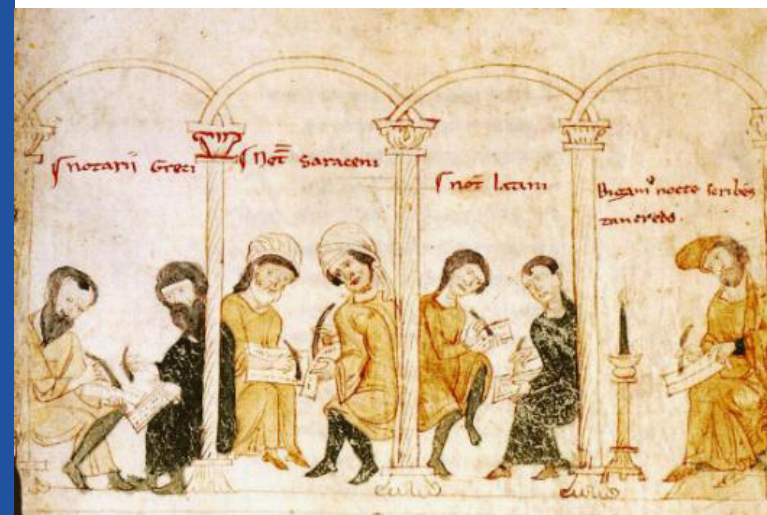 notarii Greci
Not Saraceni
not latini
Bigami nocte scribes
tancredo.